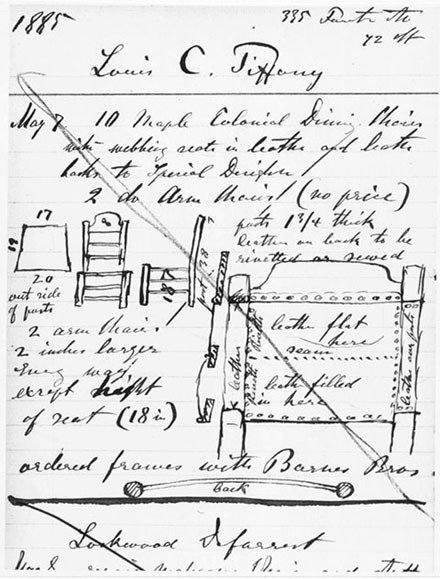 1885
335 Fourth Av
72
Louis C. Tiffany
May 7 10 Maple Colonial Dining Chairs
with webbing seats in leather and leather
backs to Special Design
2 do Arm Chairs (no price)
posts 1 3/4 thick
leather on back to be
rivetted or sewed
17
19
20
out side
of posts
18
post 38
2 arm Chairs
2 inches larger
Every way
except height
of seat (18 in)
leather flat
here
seam
leather
leath filled
in here
leather
ordered frames with Barnes Bros
back
Lockwood Deforrest